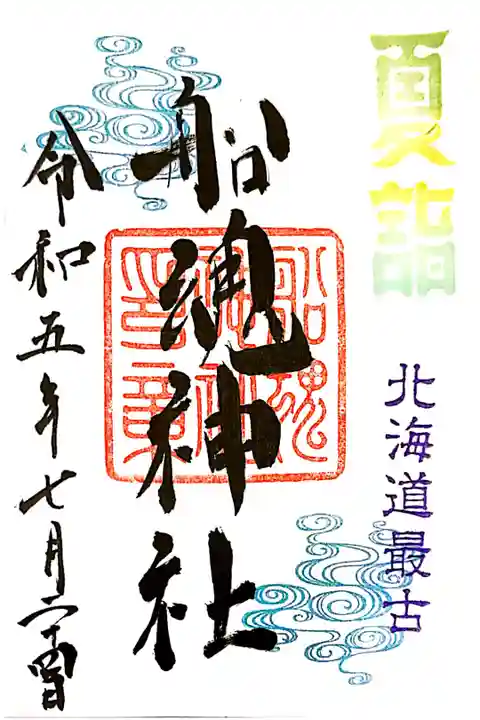 夏詣
北海道最古
船魂神社
船魂
神社
印章
令和五年七月二十四日